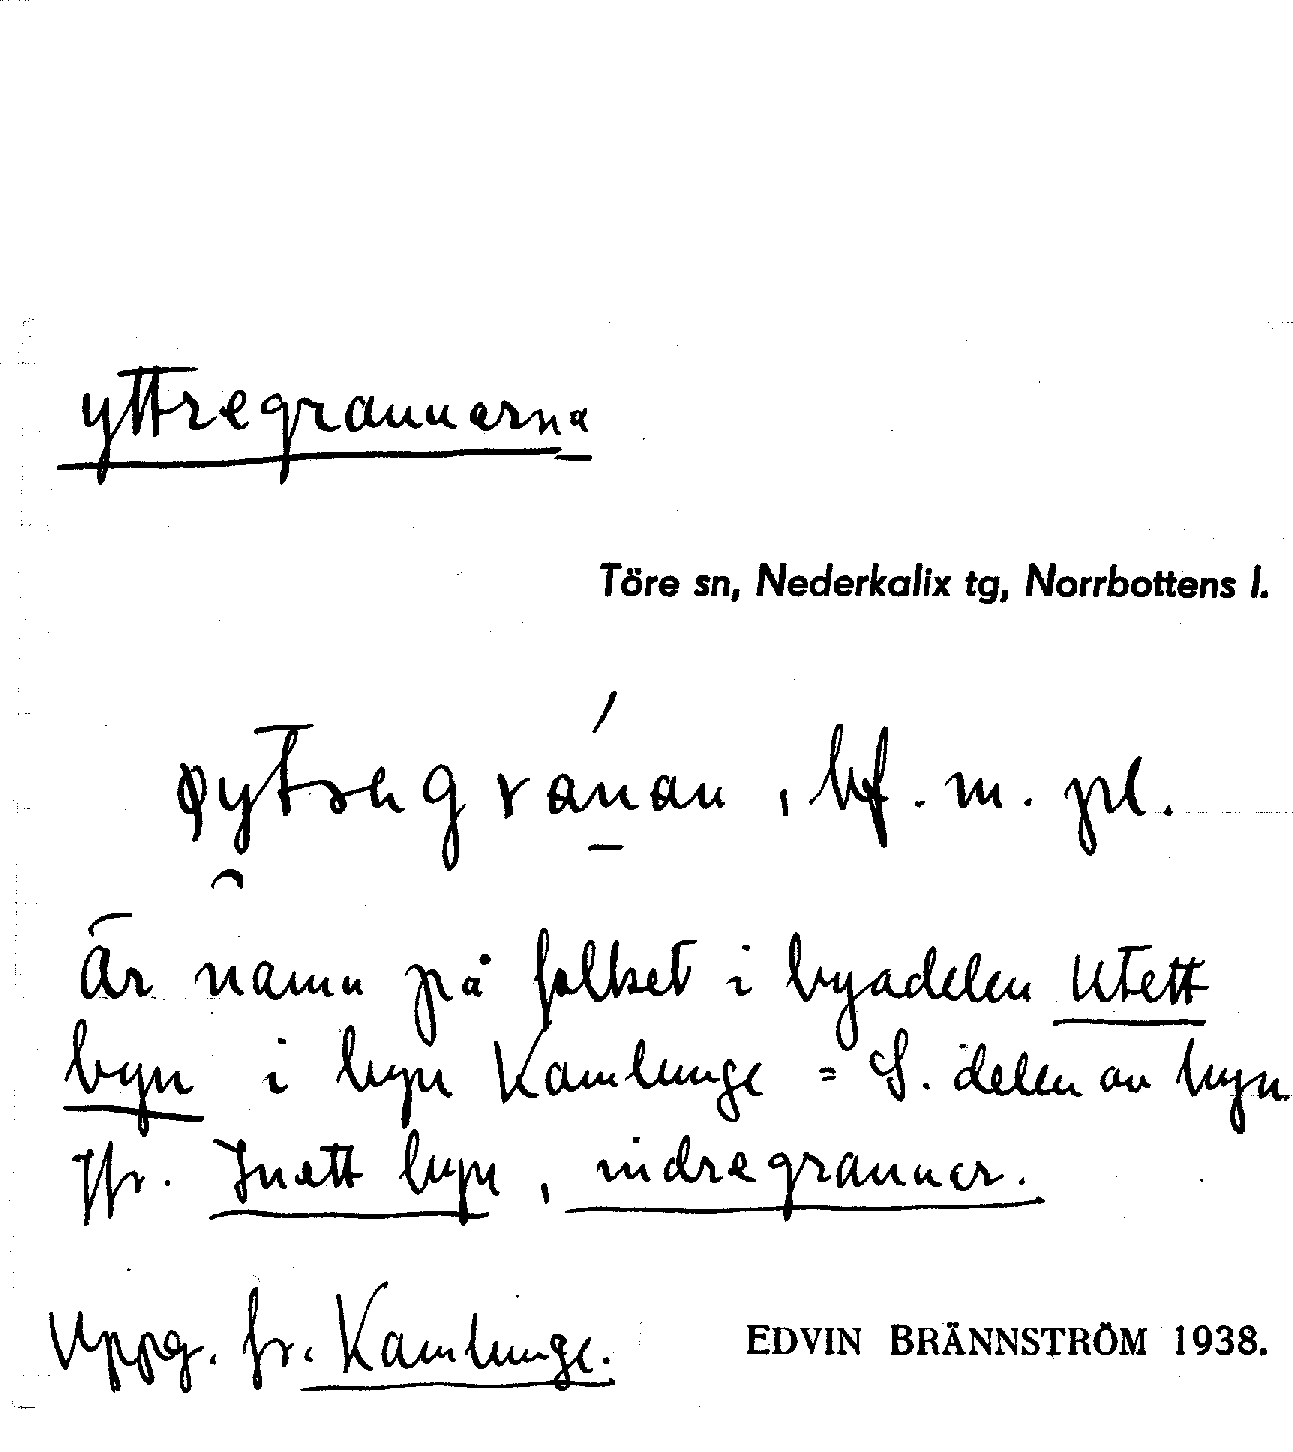 yttregrannerna
Töre sn, Nederkalix tg, Norrbottens l.
, bf. m. pl.
Är namn på folket i byadelen Utett
byn i byn Kamlunge = S. delen av byn
Jfr. Inett byn, indregranner.
Uppg. fr. Kamlunge.
EDVIN BRÄNNSTRÖM 1938.